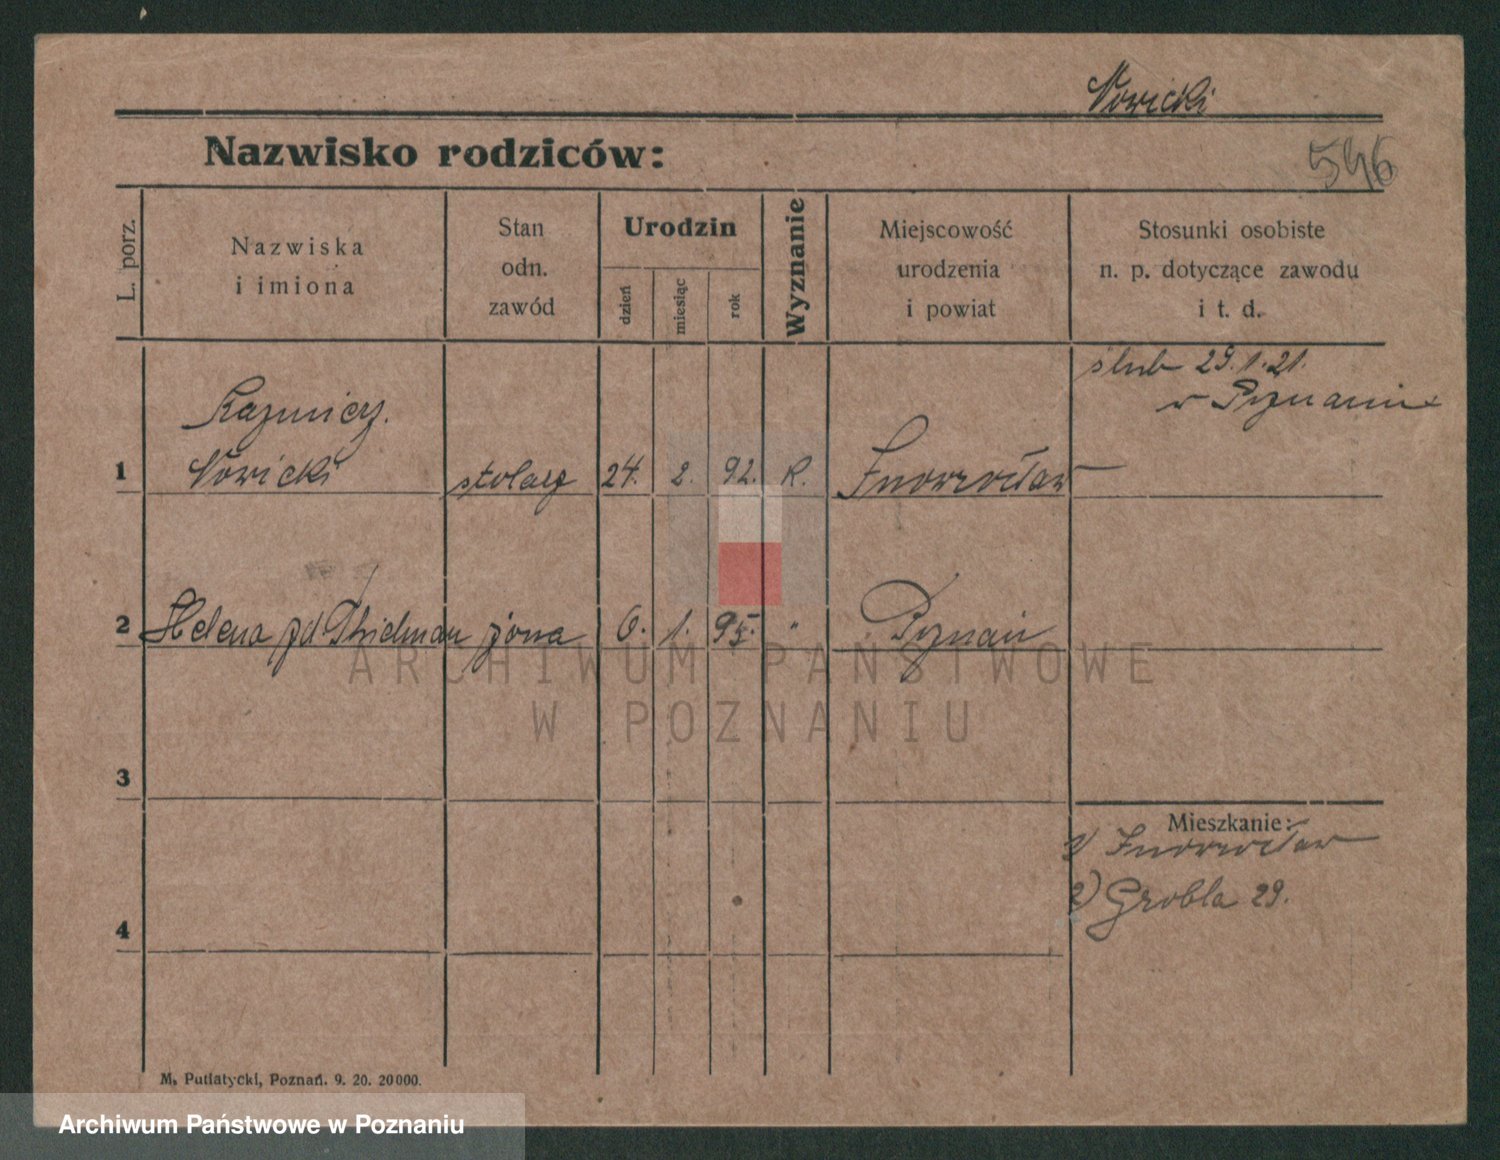 Nowicki
Nazwisko rodziców:
546
L. porz.
Nazwiska
i imiona
Stan
odn.
zawód
Urodzin
dzień
miesiąc
rok
Wyznanie
Miejscowość
urodzenia
i powiat
Stosunki osobiste
n. p. dotyczące zawodu
i t. d.
ślub 29.1.21.
w Poznaniu
Kazmierz.
1 Nowicki stolarz 24. 2. 92. R. Inowrocław
2 Helena zd Thielman żona 6. 1. 95. " Poznań
ARCHIWUM PAŃSTWOWE
W POZNANIU
3
Mieszkanie:
1) Inowrocław
2) Grobla 29.
4
M. Putiatycki, Poznań. 9. 20. 20000.
Archiwum Państwowe w Poznaniu